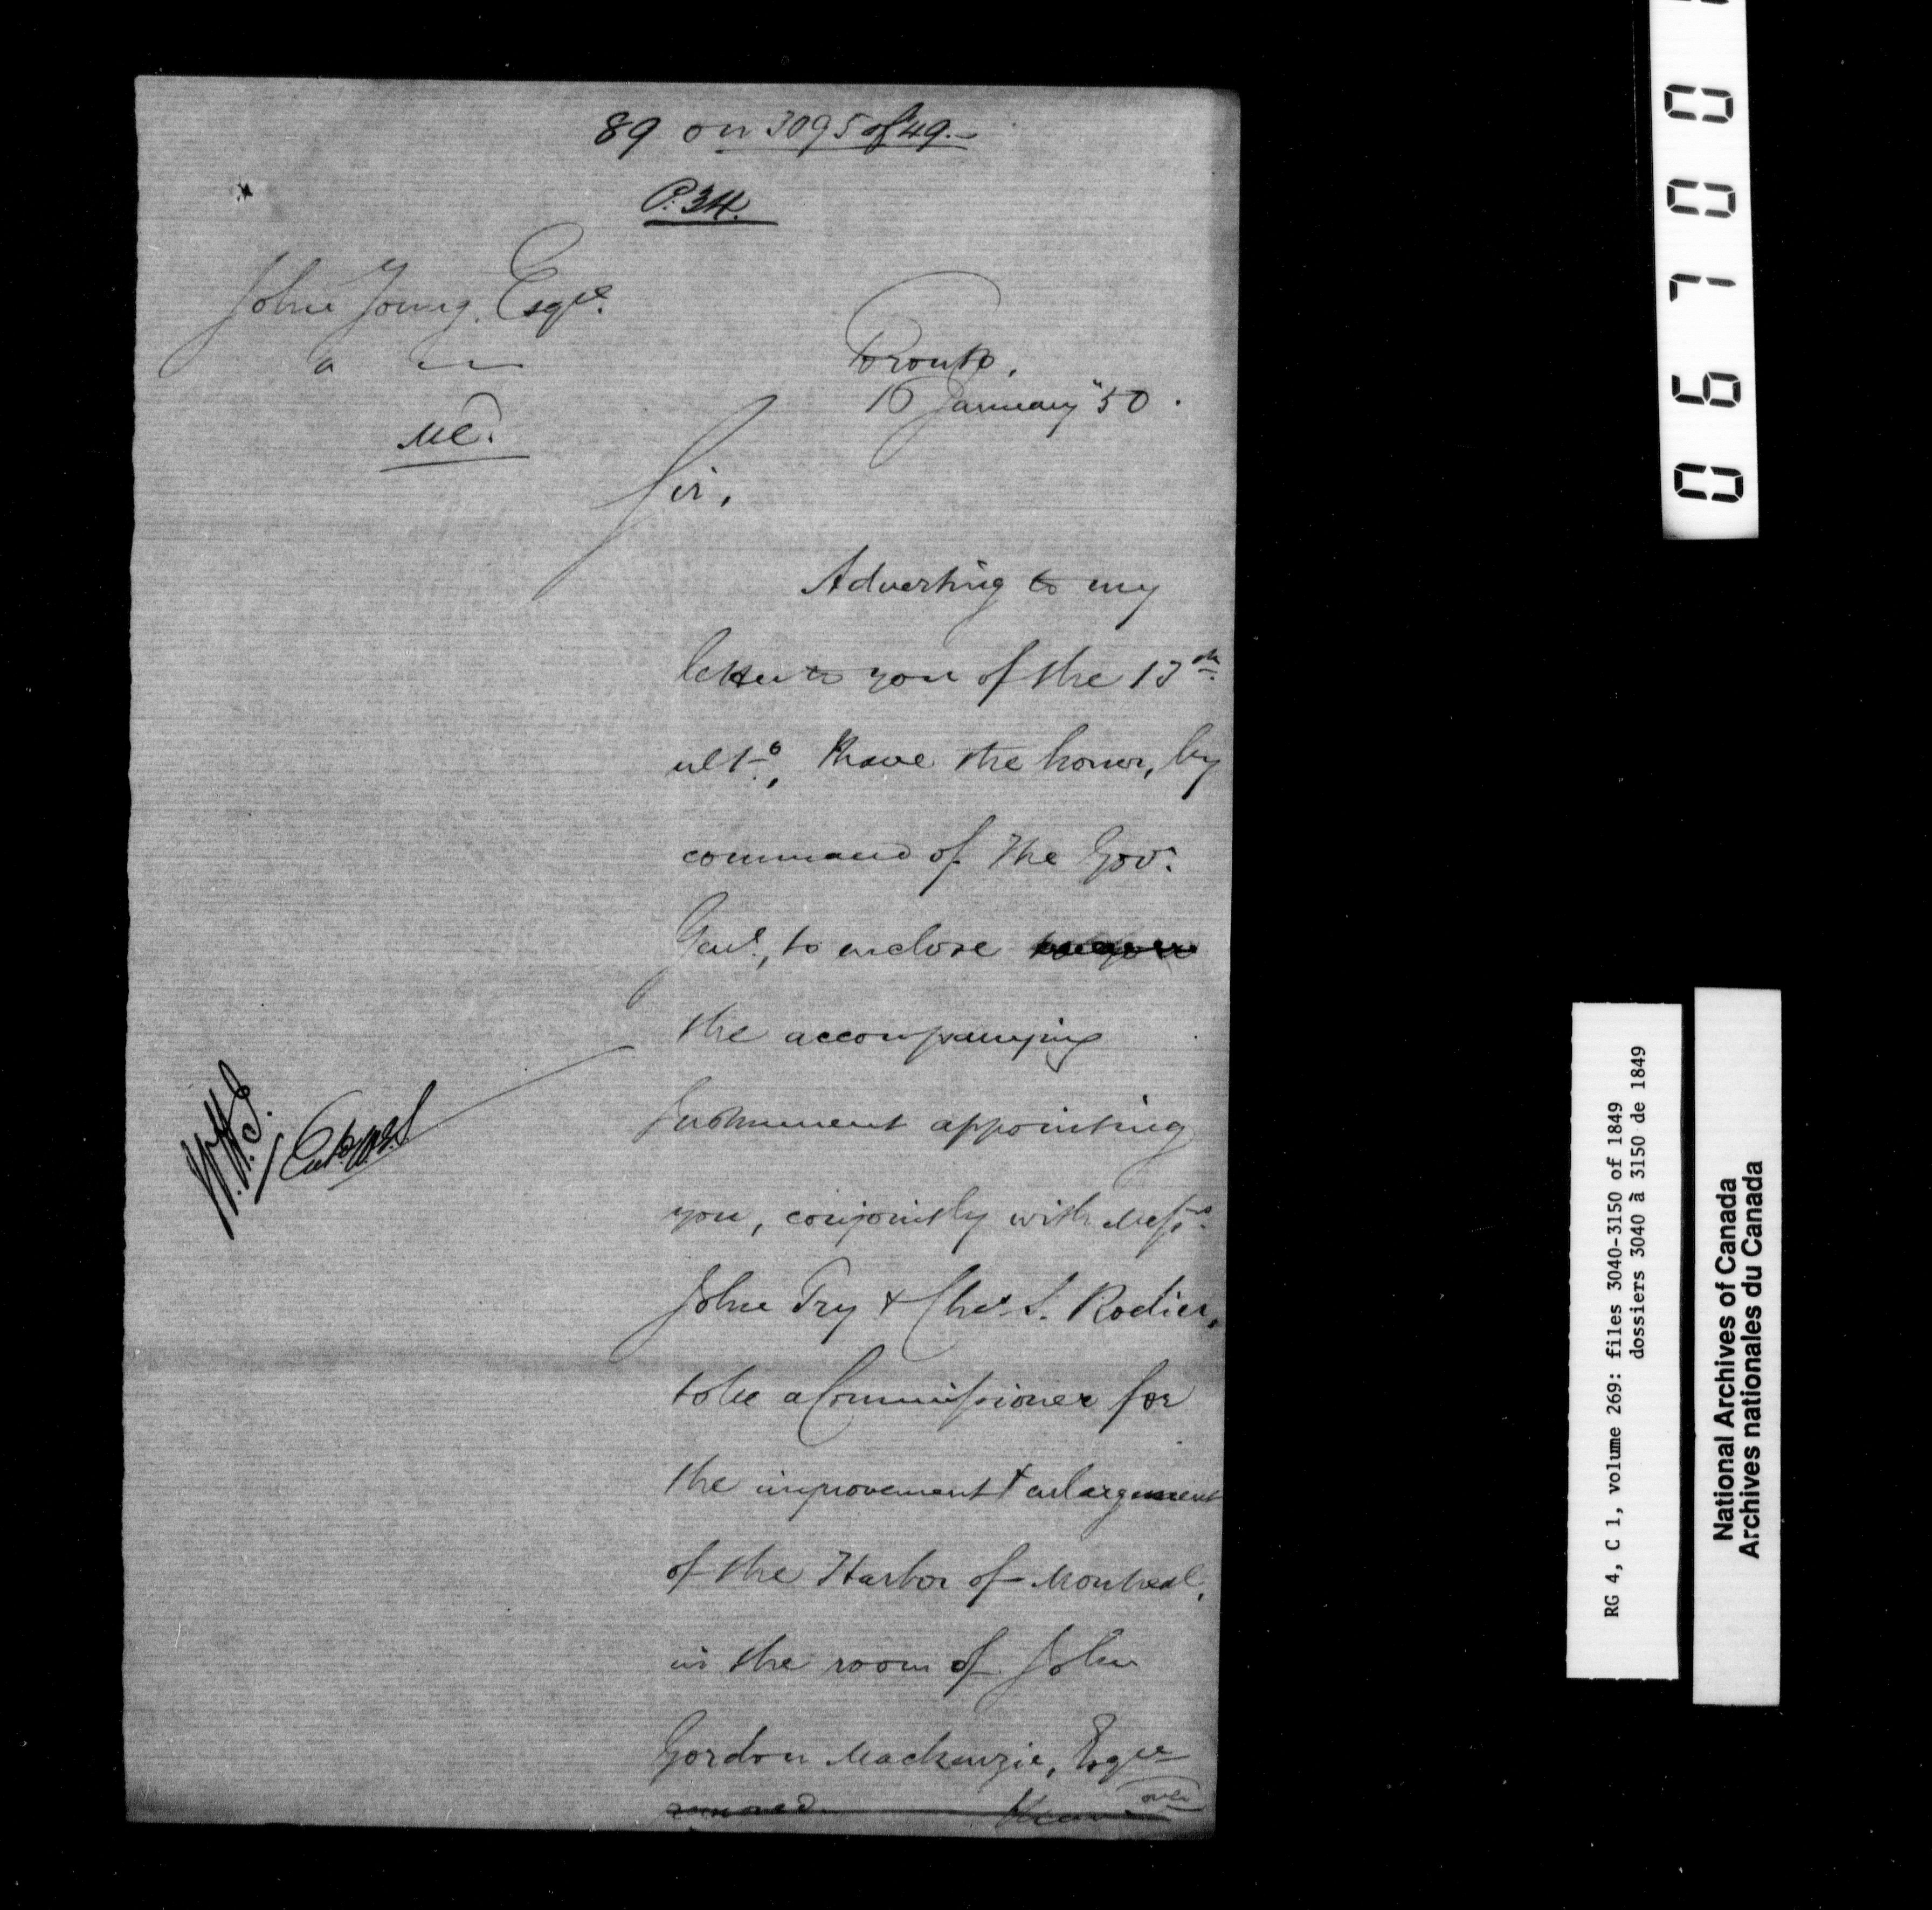 89 on 3095 of 49.-
P. 34.
John Young. Esqre.
Toronto,
10 January "50.
Sir,
Adverting to my
letter to you of the 13th
ulto., I have the honor, by
command of The Gov.
Genl., to enclose
the accompanying
Instrument appointing
you, conjointly with Messrs.
John Try & Chas. S. Rodier,
to be a Commissioner for
the improvement & enlargement
of the Harbor of Montreal,
in the room of John
Gordon Mackenzie, Esqre
removed. I have
over
06700
RG 4, C 1, volume 269: files 3040-3150 of 1849
dossiers 3040 à 3150 de 1849
National Archives of Canada
Archives nationales du Canada